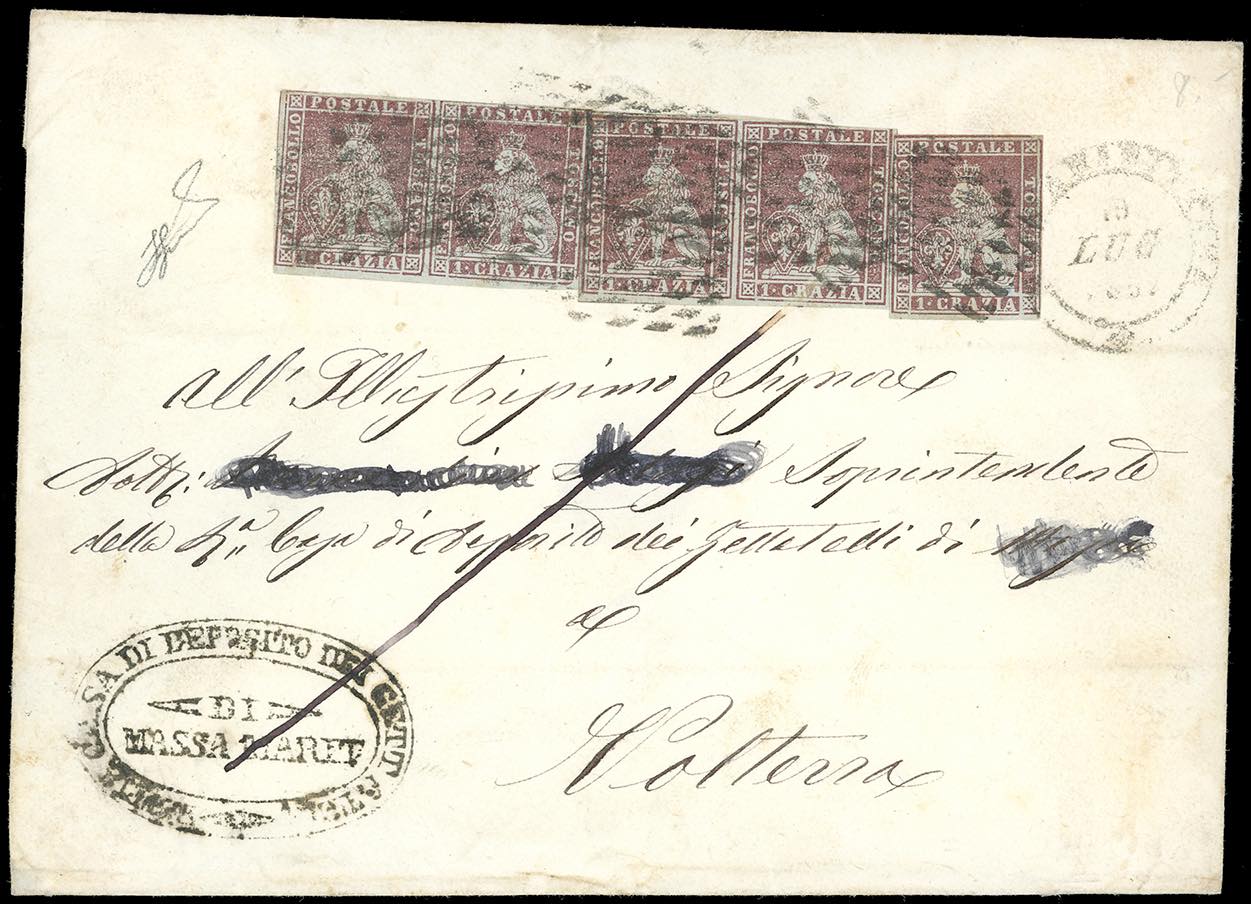 8.-
FRANCOBOLLO POSTALE TOSCANO 1·CRAZIA
FRANCOBOLLO POSTALE TOSCANO 1·CRAZIA
FRANCOBOLLO POSTALE TOSCANO 1·CRAZIA
FRANCOBOLLO POSTALE TOSCANO 1·CRAZIA
FRANCOBOLLO POSTALE TOSCANO 1·CRAZIA
LUG
All' Illustrissimo Signore
Dott. Soprintendente
della Ra. Casa di deposito dei Gettatelli di
a
Volterra
CASA DI DEPOSITO DEI GETTATELLI
DI
MASSA MARIT